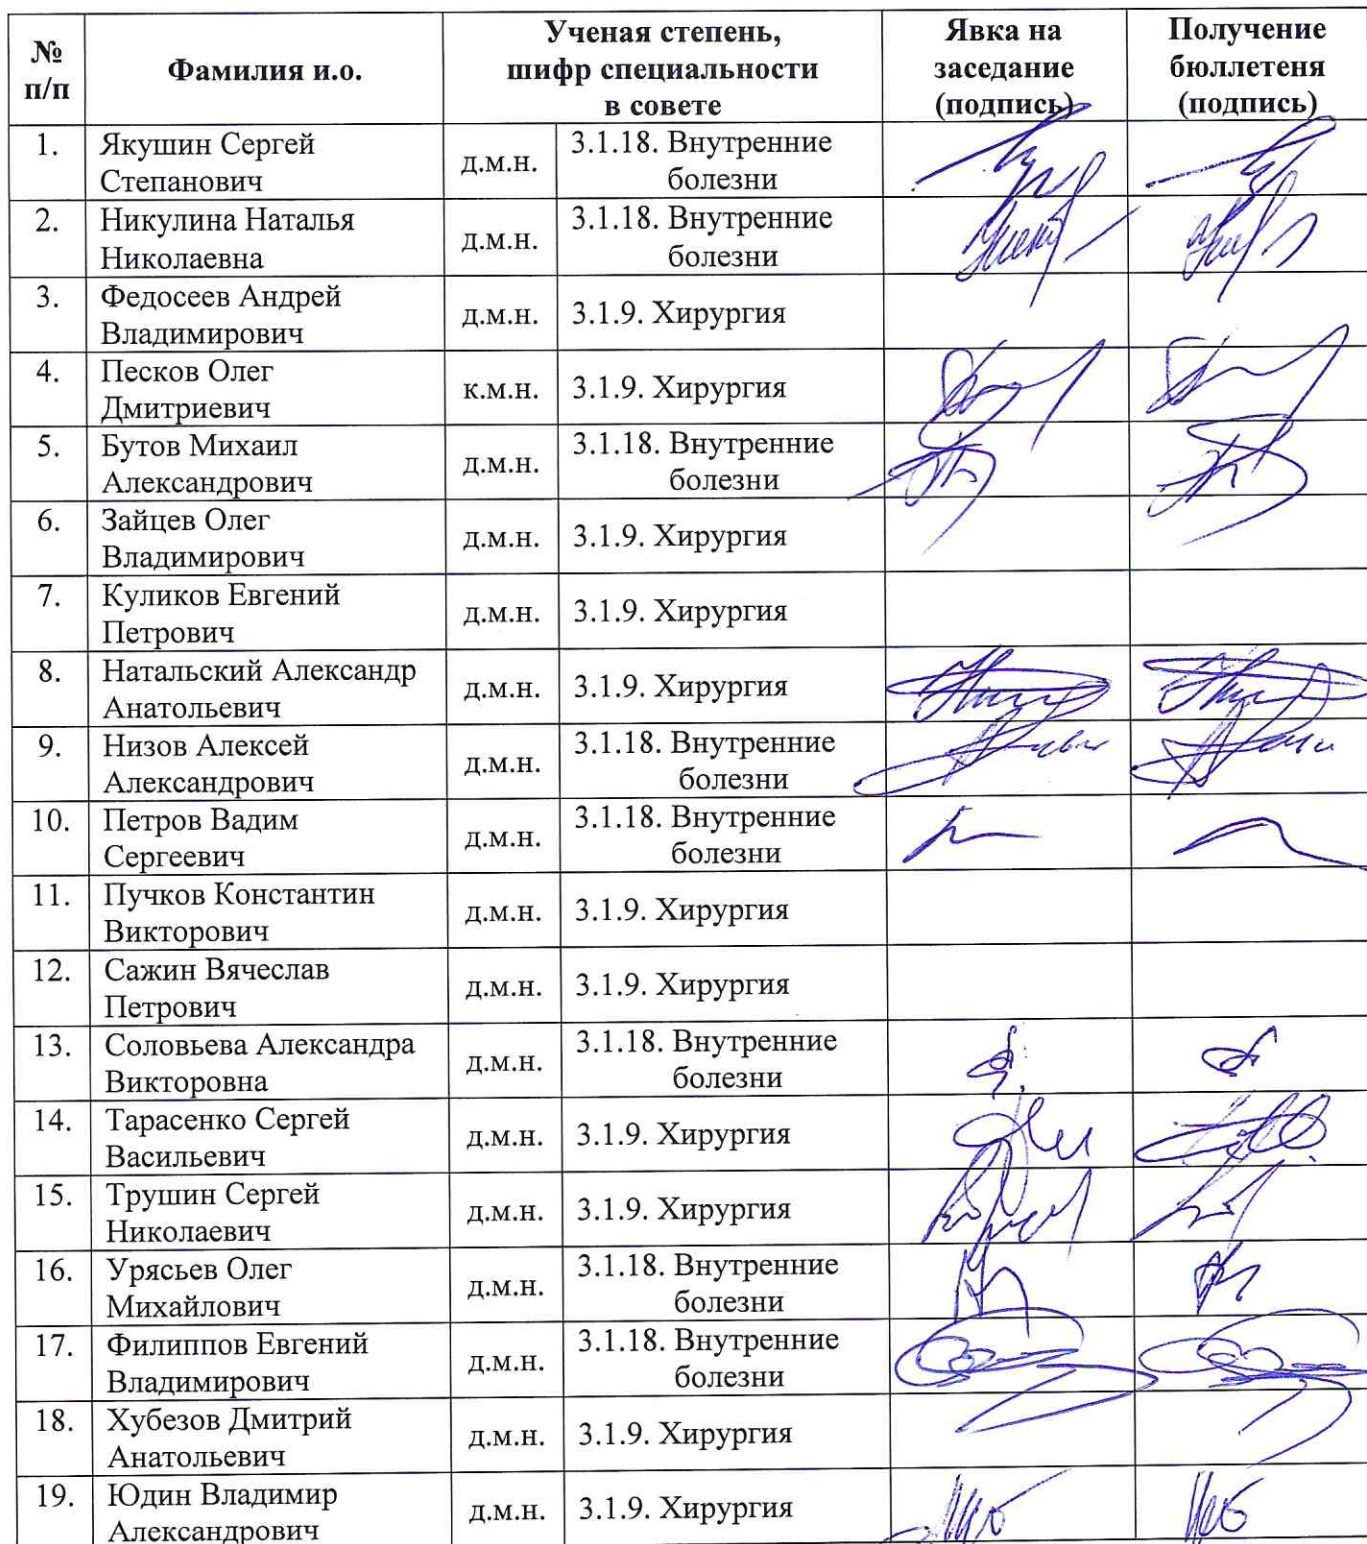 № п/п
Фамилия и.о.
Ученая степень,
шифр специальности
в совете
Явка на
заседание
(подпись)
Получение
бюллетеня
(подпись)
1.
Якушин Сергей
Степанович
д.м.н.
3.1.18. Внутренние
болезни
2.
Никулина Наталья
Николаевна
д.м.н.
3.1.18. Внутренние
болезни
3.
Федосеев Андрей
Владимирович
д.м.н.
3.1.9. Хирургия
4.
Песков Олег
Дмитриевич
к.м.н.
3.1.9. Хирургия
5.
Бутов Михаил
Александрович
д.м.н.
3.1.18. Внутренние
болезни
6.
Зайцев Олег
Владимирович
д.м.н.
3.1.9. Хирургия
7.
Куликов Евгений
Петрович
д.м.н.
3.1.9. Хирургия
8.
Натальский Александр
Анатольевич
д.м.н.
3.1.9. Хирургия
9.
Низов Алексей
Александрович
д.м.н.
3.1.18. Внутренние
болезни
10.
Петров Вадим
Сергеевич
д.м.н.
3.1.18. Внутренние
болезни
11.
Пучков Константин
Викторович
д.м.н.
3.1.9. Хирургия
12.
Сажин Вячеслав
Петрович
д.м.н.
3.1.9. Хирургия
13.
Соловьева Александра
Викторовна
д.м.н.
3.1.18. Внутренние
болезни
14.
Тарасенко Сергей
Васильевич
д.м.н.
3.1.9. Хирургия
15.
Трушин Сергей
Николаевич
д.м.н.
3.1.9. Хирургия
16.
Урясьев Олег
Михайлович
д.м.н.
3.1.18. Внутренние
болезни
17.
Филиппов Евгений
Владимирович
д.м.н.
3.1.18. Внутренние
болезни
18.
Хубезов Дмитрий
Анатольевич
д.м.н.
3.1.9. Хирургия
19.
Юдин Владимир
Александрович
д.м.н.
3.1.9. Хирургия